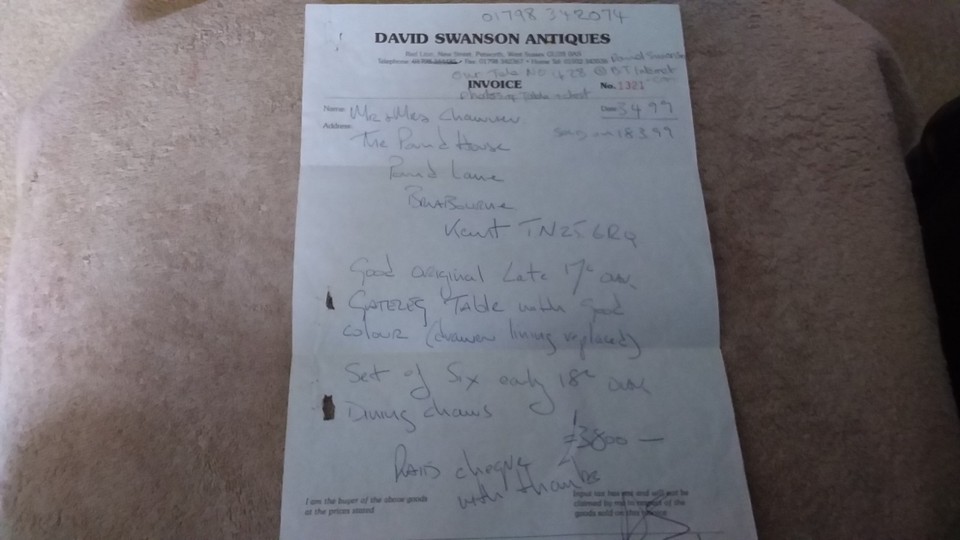 01798 342074
DAVID SWANSON ANTIQUES
New Street, Petworth, West Sussex
Telephone Fax 01798 Home Tel
Our Tele No 428 @ BT Internet
INVOICE No. 1321
photos of Table
Name: Mr & Mrs Date 3 4 99
Address: 18 3 99
The Pound House
Pound Lane
Brabourne
Kent TN25 6RQ
Good original Late 17c oak
Gateleg Table with good
colour (drawer lining replaced)
Set of Six early 18c oak
Dining chairs
£3800 —
Paid cheque
with thanks
I am the buyer of the above goods
at the prices stated
Input tax has not and will not be
claimed by me in respect of the
goods sold on this invoice